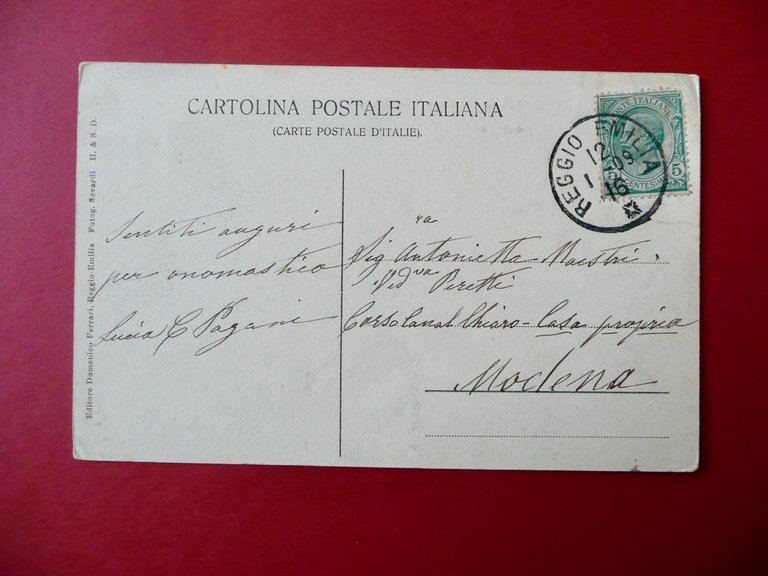 CARTOLINA POSTALE ITALIANA
(CARTE POSTALE D'ITALIE).
POSTE ITALIANE
5
CENTESIMI
REGGIO EMILIA
12
1 09
16
Sentiti auguri
per onomastico
Lucia C Pagani
Sig.ra Antonietta Maestri
Ved.va Peretti
Corso Canal Chiaro - Casa propria
Modena
Editore Domenico Ferrari, Reggio-Emilia Fotog. Sevardi H. & S. D.